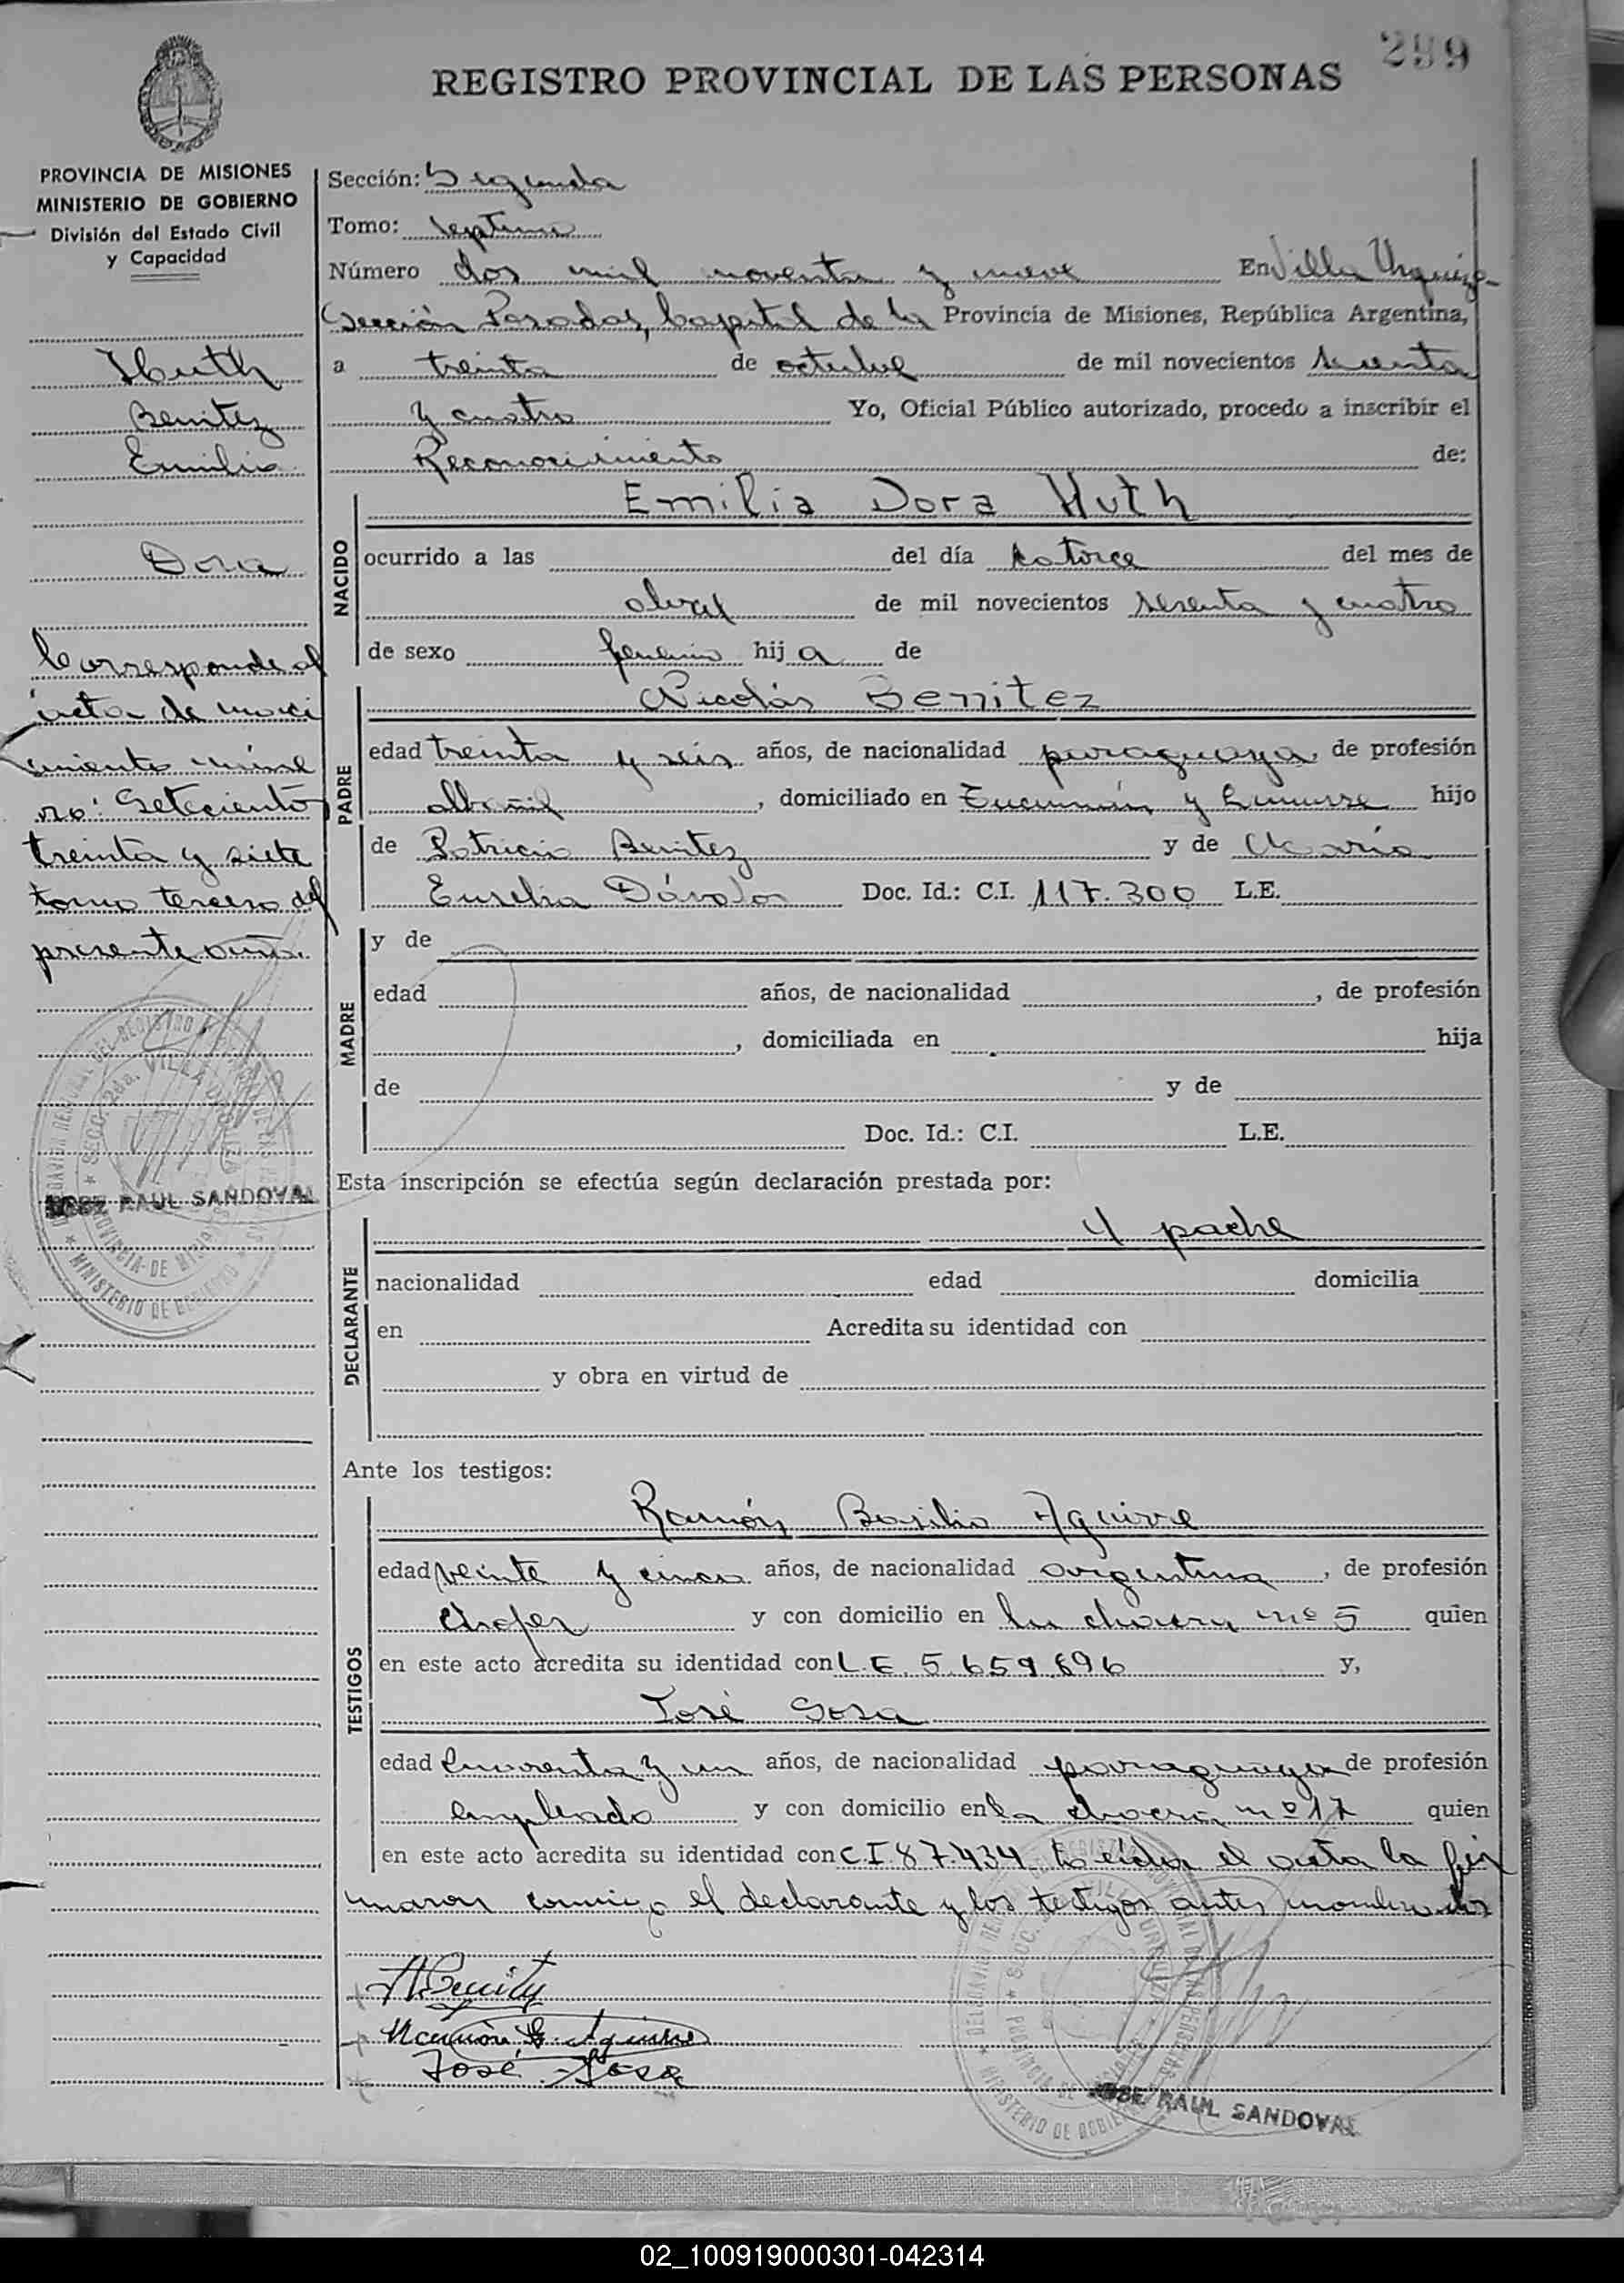 299
REGISTRO PROVINCIAL DE LAS PERSONAS
PROVINCIA DE MISIONES
MINISTERIO DE GOBIERNO
División del Estado Civil
y Capacidad
Huth
Benitez
Emilia
Dora
Corresponde al
acta de naci
miento núme
ro: Setecientos
treinta y siete
tomo tercero del
presente año.
SECC. 2da. VILLA URQUIZA
PROVINCIA DE MISIONES
MINISTERIO DE GOBIERNO
JOSE RAUL SANDOVAL
Sección: Segunda
Tomo: septimo
Número dos mil noventa y nueve En Villa Urquiza
Sección Posadas, Capital de la Provincia de Misiones, República Argentina,
a treinta de octubre de mil novecientos sesenta
y cuatro Yo, Oficial Público autorizado, procedo a inscribir el
Reconocimiento de:
NACIDO
Emilia Dora Huth
ocurrido a las del día catorce del mes de
abril de mil novecientos sesenta y cuatro
de sexo femenino hij a de
PADRE
Nicolás Benitez
edad treinta y seis años, de nacionalidad paraguaya, de profesión
albañil, domiciliado en Tucumán y hijo
de Patricio Benitez y de María
Dávalos Doc. Id.: C.I. 117.300 L.E.
MADRE
y de
edad años, de nacionalidad , de profesión
, domiciliada en hija
de y de
Doc. Id.: C.I. L.E.
Esta inscripción se efectúa según declaración prestada por:
DECLARANTE
el padre
nacionalidad edad domicilia
en Acredita su identidad con
y obra en virtud de
Ante los testigos:
TESTIGOS
Ramón Basilio Aguirre
edad veinte y cinco años, de nacionalidad argentina, de profesión
chofer y con domicilio en la chacra nº 5 quien
en este acto acredita su identidad con L.E. 5.659.696 y,
José Sosa
edad cuarenta y un años, de nacionalidad paraguaya de profesión
empleado y con domicilio en la chacra nº 17 quien
en este acto acredita su identidad con C.I 87.434 Leída el acta la fir
maron conmigo el declarante y los testigos antes nombrados
N Benitez
Ramón B. Aguirre
José Sosa
JOSE RAUL SANDOVAL
02_100919000301-042314